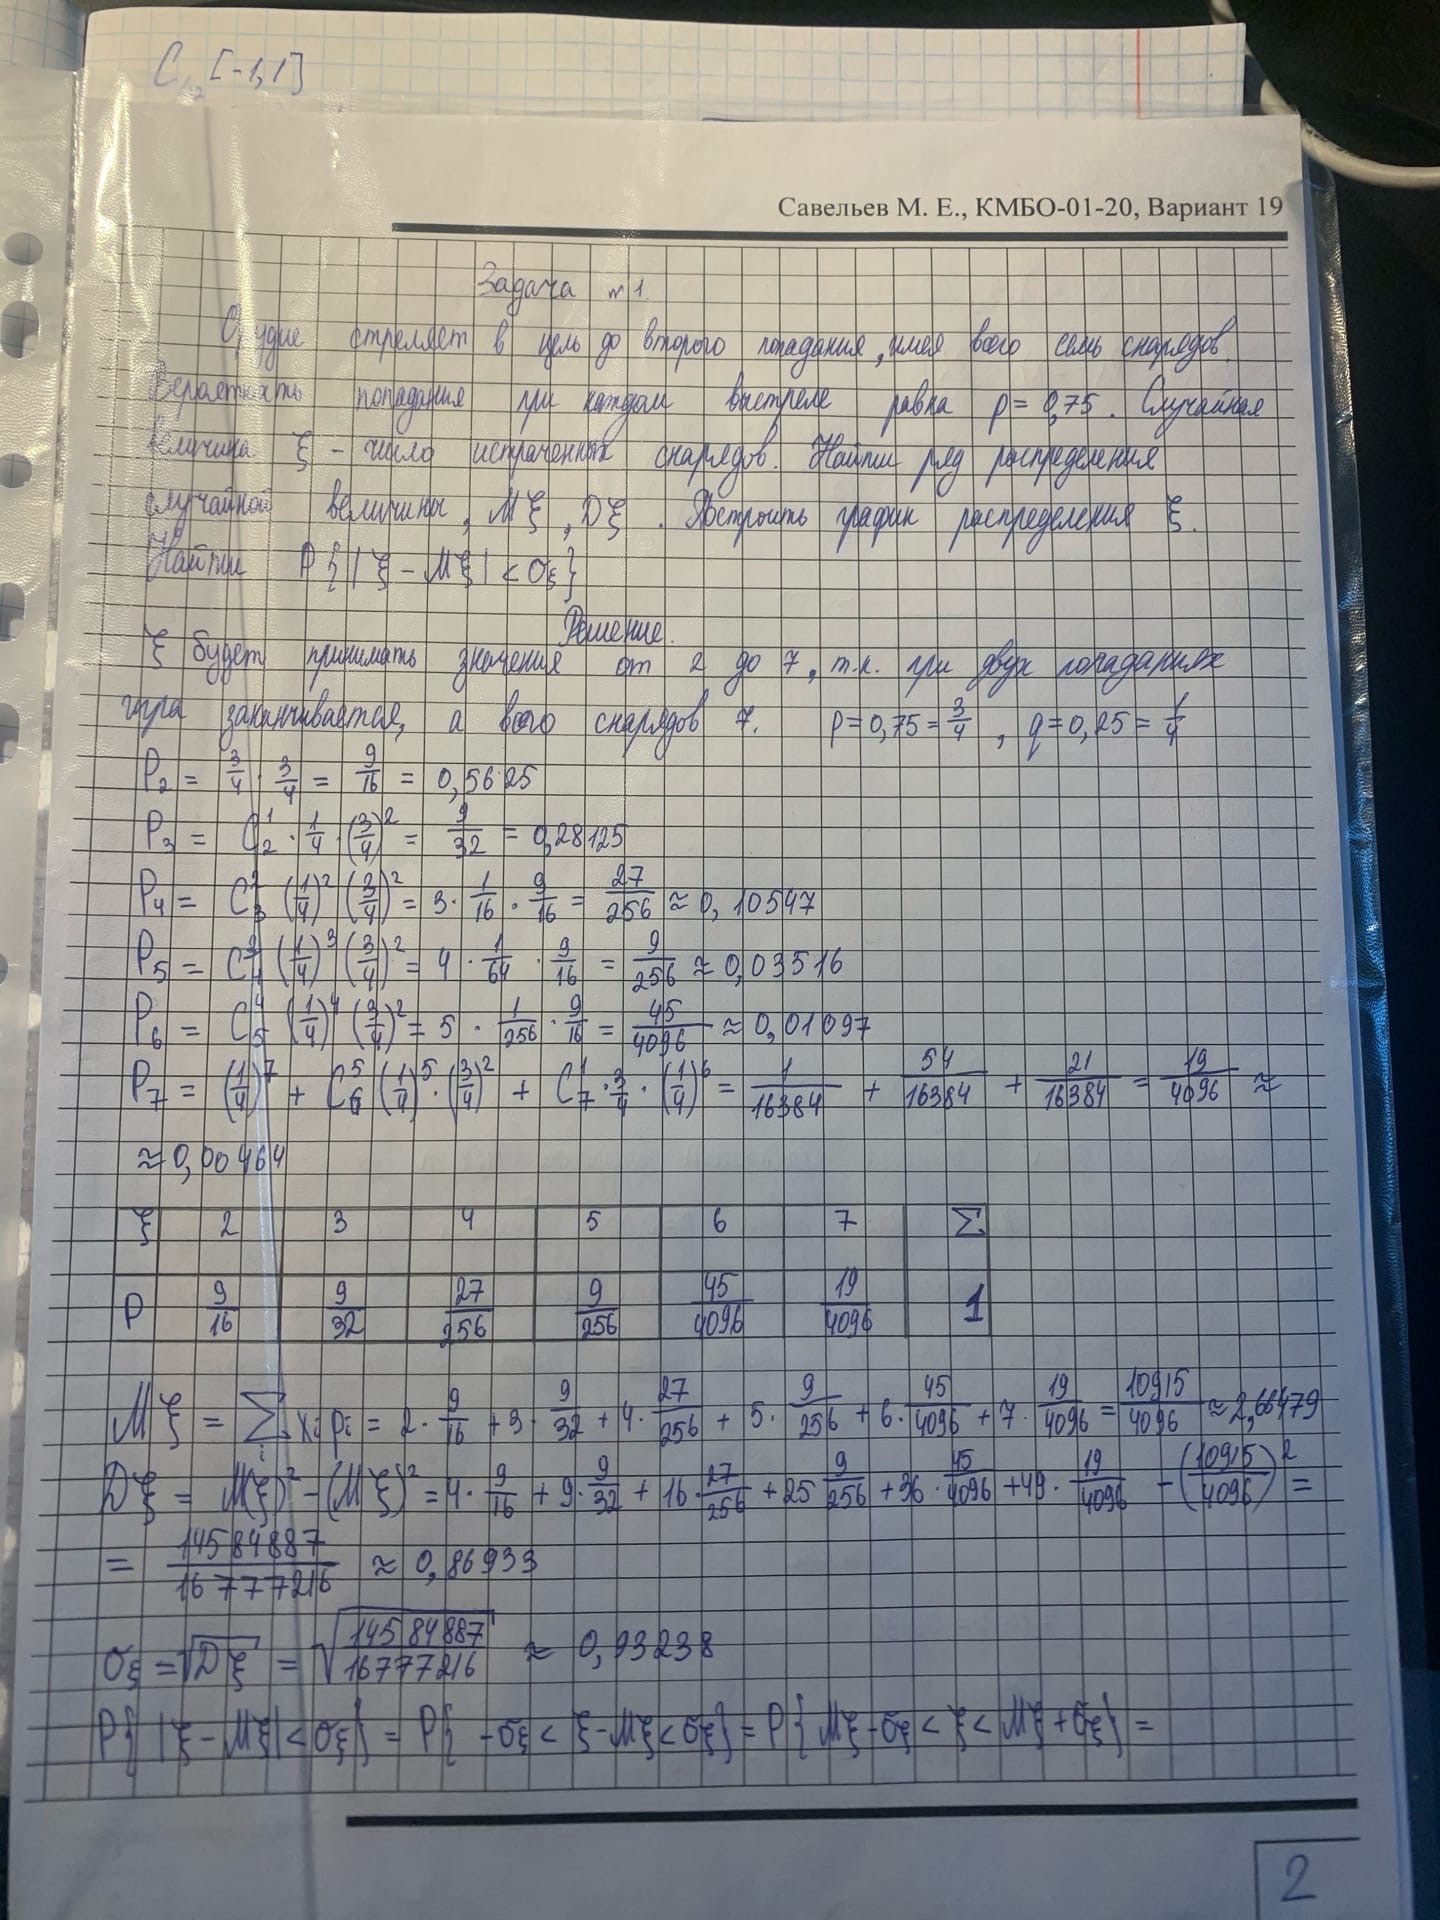 C₁,₂ [-1,1]
Савельев М. Е., КМБО-01-20, Вариант 19
Задача №1.
Орудие стреляет в цель до второго попадания, имея всего семь снарядов.
Вероятность попадания при каждом выстреле равна p = 0,75. Случайная
величина ξ – число истраченных снарядов. Найти ряд распределения
случайной величины, Mξ, Dξ. Построить график распределения ξ.
Найти P{|ξ - Mξ| < σξ}
Решение.
ξ будет принимать значения от 2 до 7, т.к. при двух попаданиях
игра заканчивается, а всего снарядов 7. p = 0,75 = 3/4, q = 0,25 = 1/4
P₂ = 3/4 · 3/4 = 9/16 = 0,5625
P₃ = C₂¹ · 1/4 · (3/4)² = 9/32 = 0,28125
P₄ = C₃² (1/4)² (3/4)² = 3 · 1/16 · 9/16 = 27/256 ≈ 0,10547
P₅ = C₄³ (1/4)³ (3/4)² = 4 · 1/64 · 9/16 = 9/256 ≈ 0,03516
P₆ = C₅⁴ (1/4)⁴ (3/4)² = 5 · 1/256 · 9/16 = 45/4096 ≈ 0,01097
P₇ = (1/4)⁷ + C₆⁵ (1/4)⁵ · (3/4)² + C₇¹ · 3/4 · (1/4)⁶ = 1/16384 + 54/16384 + 21/16384 = 19/4096 ≈
≈ 0,00464
ξ 2 3 4 5 6 7 Σ
P 9/16 9/32 27/256 9/256 45/4096 19/4096 1
Mξ = Σ xᵢ pᵢ = 2 · 9/16 + 3 · 9/32 + 4 · 27/256 + 5 · 9/256 + 6 · 45/4096 + 7 · 19/4096 = 10915/4096 ≈ 2,66479
Dξ = M(ξ)² - (Mξ)² = 4 · 9/16 + 9 · 9/32 + 16 · 27/256 + 25 9/256 + 36 · 45/4096 + 49 · 19/4096 - (10915/4096)² =
= 14584887/16777216 ≈ 0,86933
σξ = √Dξ = √(14584887/16777216) ≈ 0,93238
P{|ξ - Mξ| < σξ} = P{-σξ < ξ - Mξ < σξ} = P{Mξ - σξ < ξ < Mξ + σξ} =
2